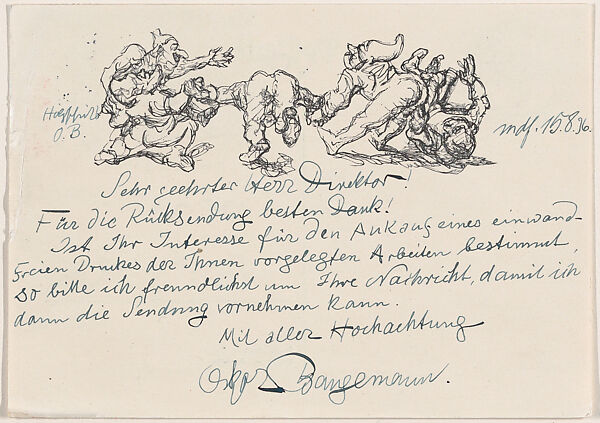 Holzschnitt
O.B.
mdf. 15.8.36.
Sehr geehrter Herr Direktor!
Für die Rücksendung besten Dank!
Ist Ihr Interesse für den Ankauf eines einwand-
freien Druckes der Ihnen vorgelegten Arbeiten bestimmt,
so bitte ich freundlichst um Ihre Nachricht, damit ich
dann die Sendung vornehmen kann.
Mit aller Hochachtung
Oskar Bangemann.